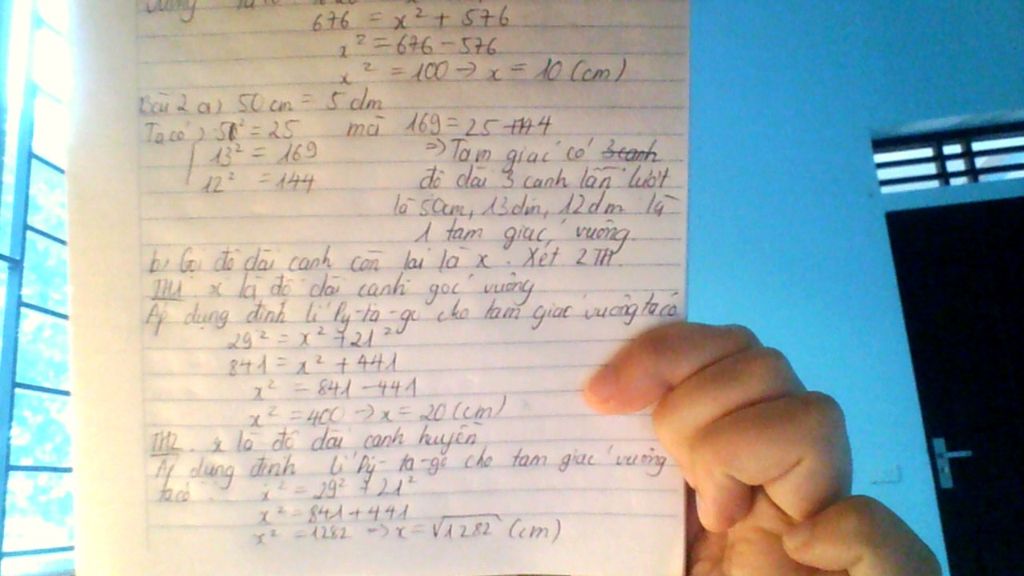 676 = x² + 576
x² = 676 - 576
x² = 100 → x = 10 (cm)
Bài 2 a, 50 cm = 5 dm
Ta có, 5² = 25 mà 169 = 25 + 144
13² = 169 ⇒ Tam giác có 3 cạnh
12² = 144 độ dài 3 cạnh lần lượt
là 50cm, 13dm, 12dm là
1 tam giác vuông.
b, Gọi độ dài cạnh còn lại là x. Xét 2 TH.
TH1 x là độ dài cạnh góc vuông
Áp dụng định lí Py-ta-go cho tam giác vuông ta có
29² = x² + 21²
841 = x² + 441
x² = 841 - 441
x² = 400 → x = 20 (cm)
TH2. x là độ dài cạnh huyền
Áp dụng định lí Py-ta-go cho tam giác vuông
ta có x² = 29² + 21²
x² = 841 + 441
x² = 1282 → x = √1282 (cm)